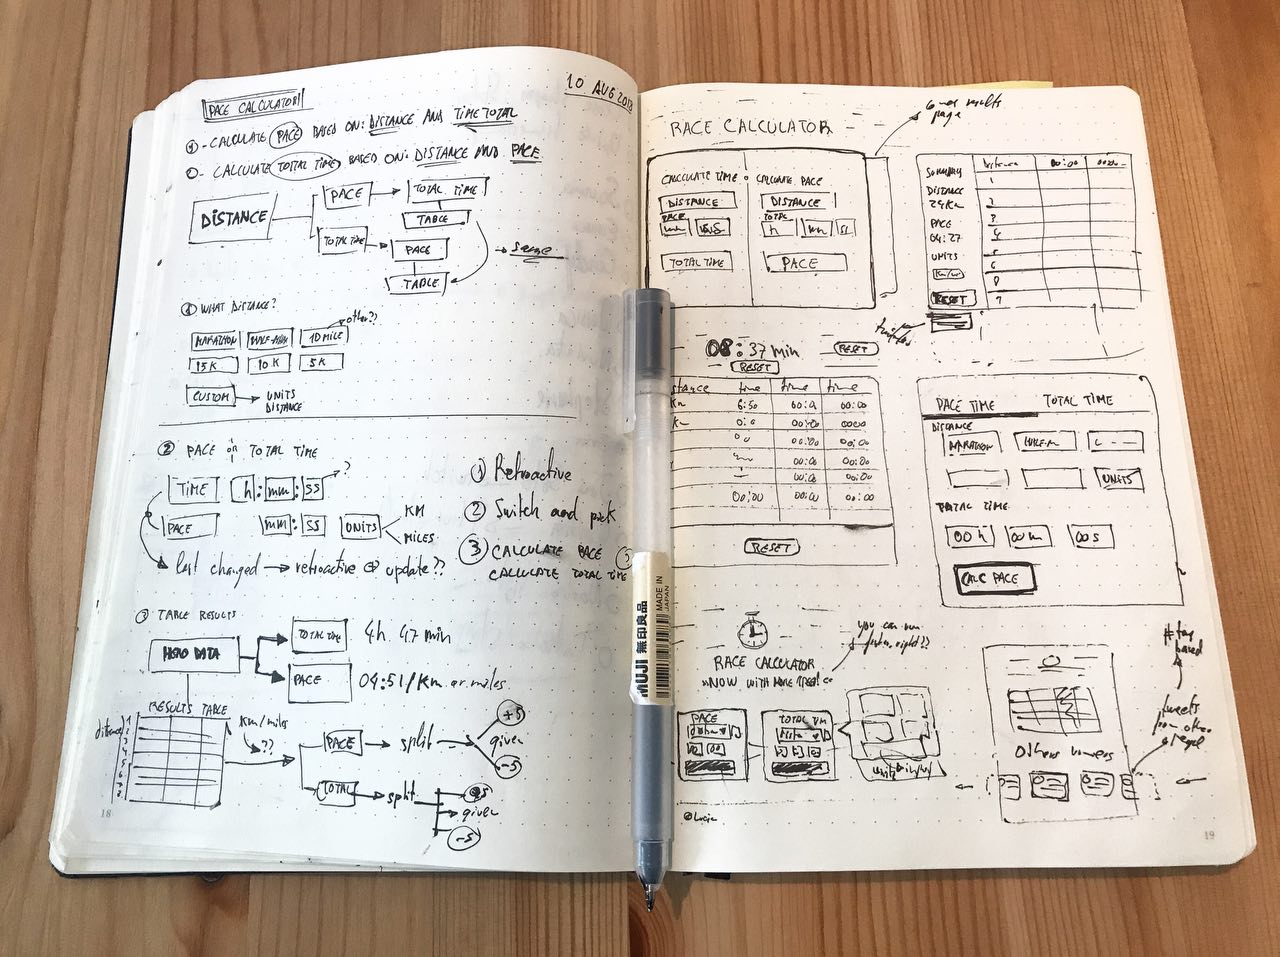 10 AUG 2018
PACE CALCULATOR
1 - CALCULATE PACE BASED ON: DISTANCE AND TIME TOTAL
CALCULATE TOTAL TIME BASED ON: DISTANCE AND PACE
DISTANCE
PACE
TOTAL TIME
TABLE
TOTAL TIME
PACE
TABLE
same
1 WHAT DISTANCE?
other??
MARATHON
HALF-MAR
10 MILE
15K
10K
5K
CUSTOM
UNITS
DISTANCE
2 PACE or TOTAL TIME
TIME
h : mm : SS
?
PACE
mm : SS
UNITS
KM
MILES
last changed → retroactive update??
1 Retroactive
2 Switch and pick
3 CALCULATE PACE
CALCULATE TOTAL TIME
3 TABLE RESULTS
HERO DATA
TOTAL TIME
4h 47 min
PACE
04:51/Km or miles
RESULTS TABLE
distance
1
2
3
4
5
6
7
8
Km/miles
??
PACE → split
+5
given
-5
TOTAL → split
+5
given
-5
18
RACE CALCULATOR
results
page
CALCULATE TIME
CALCULATE PACE
DISTANCE
DISTANCE
PACE
TOTAL
mm
SS
h
mm
SS
TOTAL TIME
PACE
SUMMARY
DISTANCE
24Km
PACE
04:27
UNITS
Km/mi
RESET
Distance
00:00
1
2
3
4
5
6
8
9
08:37 min
RESET
RESET
stance
time
time
time
Km
6:50
00:00
00:00
00:00
0000
00
00:00
00:00
00:00
00:00
00:00
00:00
00:00
00:00
00:00
RESET
PACE TIME
TOTAL TIME
DISTANCE
MARATHON
HALF-M
UNITS
TOTAL TIME
00h
00m
00s
CALC PACE
MADE IN
JAPAN
MUJI 無印良品
you can run
faster, right??
RACE CALCULATOR
NOW WITH MORE SPEED!
PACE
TOTAL TM
# tag
based
tweets
from other
Others runners
19